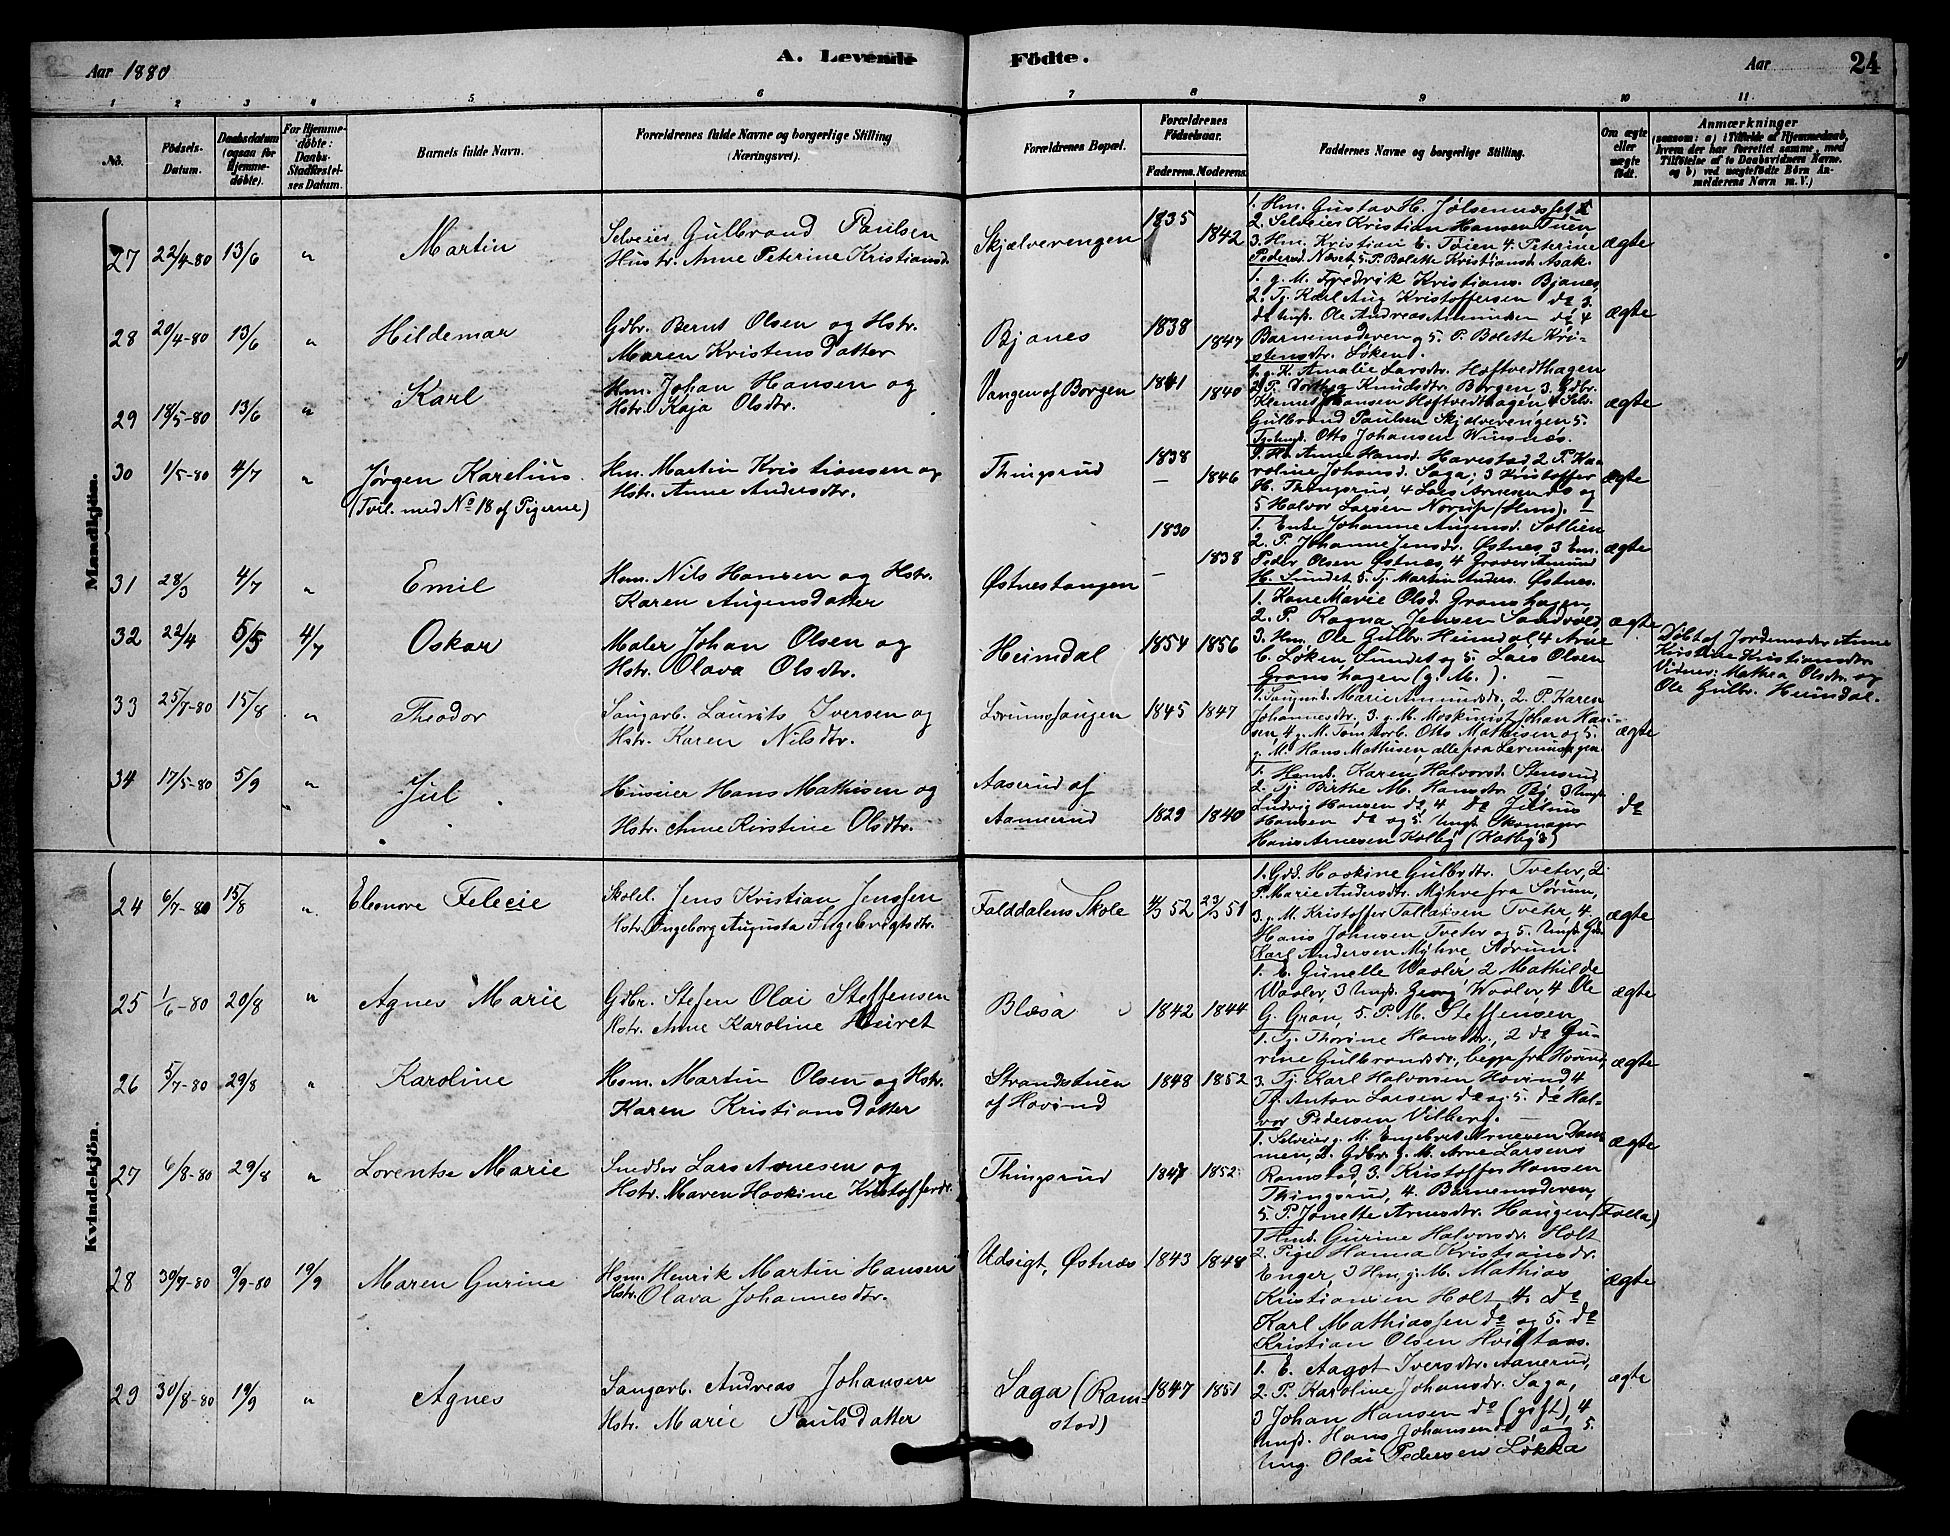 Aar 1880
A. Levende
Födte.
Aar
24
1 2 3 4 5 6 7 8 9 10 11
No.
Födsels-
Datum.
Daabsdatum
(ogsaa for
Hjemme-
døbte).
For Hjemme-
døbte:
Daabs-
Stadfæstel-
ses Datum.
Barnets fulde Navn.
Forældrenes fulde Navne og borgerlige Stilling
(Næringsvei).
Forældrenes Bopæl.
Forældrenes
Födselsaar.
Faderens. Moderens.
Faddernes Navne og borgerlige Stilling.
Om ægte
eller
uægte
født.
Anmærkninger
(saasom: a) i Tilfælde af Hjemmedaab,
hvem der har forrettet samme, med
Tilføielse af to Daabsvidners Navne.
og b) ved uægtefødte Börn An-
melderens Navn m. V.)
Mandkjön.
27 22/4-80 13/6 " Martin
Selveier Gulbrand Paulsen
Hustr. Anne Peterine Kristiansd.
Skjælverengen 1835 1842
1. Hm. Gustav H. Jølsennæsset
2. Selveier Kristian Hansen Tuen,
3. Hm. Kristian E. Tøien 4. Peterine
Pedersd. Næset, 5. P. Bolette Kristiansd. Asak.
ægte
28 20/4-80 13/6 " Hildemar
Gdbr. Bernt Olsen og Hstr.
Maren Kristensdatter
Bjanes 1838 1847
1. g. M. Fredrik Kristians. Bjanes,
2. Tj. Karl Aug Kristoffersen do 3.
do Ungk. Ole Andreas Amundsen do, 4
Barnemoderen og 5. P. Bolette Kri-
stensdtr. Løken.
ægte
29 18/5-80 13/6 " Karl
Hm. Johan Hansen og
Hstr. Kaja Olsdtr.
Vangen af Borgen 1841 1840
1. g. K. Amalie Larsdtr. Høftvedthagen
2 P. Dorthea Knudsdtr. Borgen, 3. Gdbr.
Hansen Høftvedthagen, 4 Selv.
Gulbrand Paulsen Skjælverengen 5.
Otto Johansen Winsnæs.
ægte
30 1/5-80 4/7 " Jørgen Karelius
(Tvil. med No 18 af Pigerne)
Hm. Martin Kristiansen og
Hstr. Anne Andersdtr.
Thingsrud 1838 1846
Anne Hansd. Harestad 2 P. Ka-
roline Johansd. Saga, 3 Kristoffer
H. Thingsrud, 4 Lars Arnesen do og
5 Halvor Larsen Norup (Hms).
ægte
31 28/3 4/7 " Emil
Hsm. Nils Hansen og Hstr.
Karen Augensdatter
Østnestangen 1830 1838
1. Enke Johanne Augensd. Sollien
2. P. Johanne Jensdtr. Østnes, 3 Em.
Peder Olsen Østnæs, 4 Graver Amund
H. Sundet 5. Tj. Martin Anders. Østnes.
ægte
32 22/4 5/5 4/7 Oskar
Maler Johan Olsen og
Hstr. Olava Olsdtr.
Heimdal 1854 1856
1. Kone Marie Olsd. Granshagen,
2. P. Ragna Jensen Sandvold,
3. Hm. Ole Gulbr. Heimdal, 4 Arne
E. Løken, Sundet og 5. Lars Olsen
Granshagen (g. M.).
ægte
Døbt af Jordemoder Anne
Kirstine Kristiansdtr.
Vidner: Mathea Olsdtr. og
Ole Gulbr. Heimdal.
33 25/7-80 15/8 " Theodor
Saugarb. Laurits Iversen og
Hstr. Karen Nilsdtr.
Lørumsaugen 1845 1847
Marie Amundsdtr, 2. P. Karen
Johannesdtr, 3. g. M. Maskinist Johan Han-
sen, 4 g. M. Tomtearb. Otto Mathisen og 5.
g. M. Hans Mathisen, alle paa
ægte
34 17/5-80 5/9 " Jul
Huseier Hans Mathisen og
Hstr. Anne Kirstine Olsdtr.
Aaserud af
Aanerud 1829 1840
1. Karen Halvorsd. Stensrud
2. Tj. Birthe M. Hansdtr. By 3 Ungk
Ludvig Hansen do, 4 do Julius
Hansen do og 5. Ungk. Skomager
Hans Arnesen Kolby (Kolby)
do
Kvindekjön.
24 6/7-80 15/8 " Eleonore Felecie
Skolel. Jens Kristian Jenssen
Hstr. Ingeborg Augusta Ingebrigtsdtr.
Falddalens Skole 4/3 52 23/3 51
1. Hoskine Gulbrdtr. Tveter, 2.
P. Marie Andersdtr. Myhre fra Sørum,
3. g. M. Kristoffer Tollausen Tveter, 4.
Hans Johnsen Tveter og 5. Ungk. Gdb.
Karl Andersen Myhre, Sørum.
ægte
25 1/6-80 20/8 " Agnes Marie
Gdbr. Stefen Olai Steffensen
Hstr. Anne Karoline
Blæsa 1842 1844
1. E. Gunelle Waaler, 2 Mathilde
Waaler, 3 Ungk. Georg Waaler, 4 Ole
G. Gran, 5. P. M. Steffensen
ægte
26 5/7-80 29/8 " Karoline
Hsm. Martin Olsen og Hstr.
Karen Kristiansdatter
Strandstuen
af Hovind 1848 1852
1. Tj. Thorine Hansdtr., 2 do Gu-
rine Gulbrandsdr., begge fra Hovind,
3. Tj. Karl Halvorsen Hovind, 4
Tj. Anton Larsen do og 5. do Hal-
vor Pedersen Vilberg.
ægte
27 6/8-80 29/8 " Lorentse Marie
Snedker Lars Arnesen og
Hstr. Maren Hoskine Kristoffersdr.
Thingsrud 1847 1852
1. Selveier g. M. Engebret Arnesen Dam-
men, 2. Gdbr. g. M. Arne Larsens
Ramstad, 3. Kristoffer Hansen
Thingsrud, 4. Barnemoderen,
5. P. Jonette Arnesdtr. Haugen (Folla)
ægte
28 30/7-80 9/9-80 19/9 Maren Gurine
Hsm. Henrik Martin Hansen
Hstr. Olava Johannesdtr.
Udsigt, Østnæs 1843 1848
1 Hmk. Gurine Halvorsdr. Holt
2. Pige Hanna Kristiansdr.
Enger, 3 Hm. g. M. Mathias
Kristiansen Holt 4. do
Karl Mathiassen do og 5. do
Kristian Olsen
ægte
29 30/8-80 19/9 " Agnes
Saugarb. Andreas Johansen
Hstr. Marie Paulsdatter
Saga (Ram-
stad) 1847 1851
1. E. Aagot Iversdtr. Aanerud,
2. P. Karoline Johansdr. Saga,
3 Johan Hansen do (gift), 4
Ungk. Hans Johansen do og 5.
Ung. Olai Pedersen Løkka
ægte